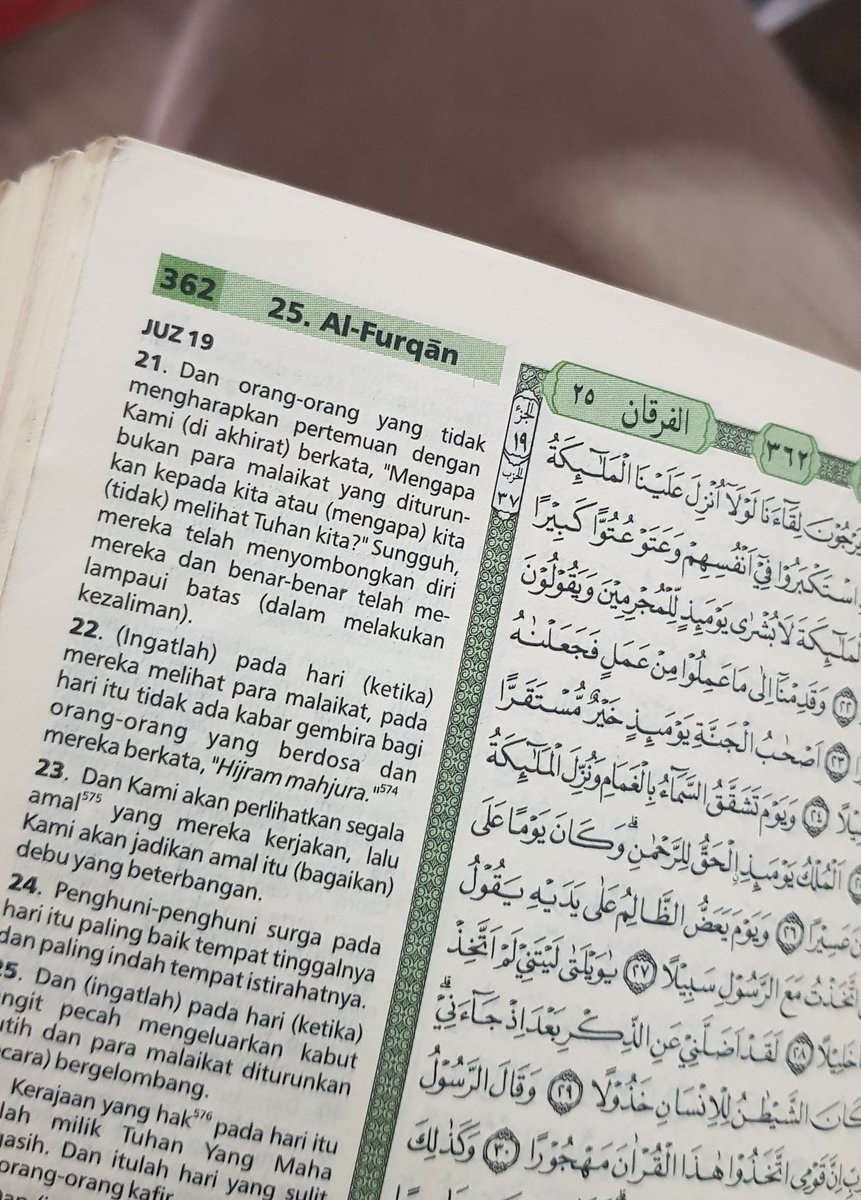 362 25. Al-Furqān
JUZ 19
21. Dan orang-orang yang tidak
mengharapkan pertemuan dengan
Kami (di akhirat) berkata, "Mengapa
bukan para malaikat yang diturun-
kan kepada kita atau (mengapa) kita
(tidak) melihat Tuhan kita?" Sungguh,
mereka telah menyombongkan diri
mereka dan benar-benar telah me-
lampaui batas (dalam melakukan
kezaliman).
22. (Ingatlah) pada hari (ketika)
mereka melihat para malaikat, pada
hari itu tidak ada kabar gembira bagi
orang-orang yang berdosa dan
mereka berkata, "Hijram mahjura."574
23. Dan Kami akan perlihatkan segala
amal575 yang mereka kerjakan, lalu
Kami akan jadikan amal itu (bagaikan)
debu yang beterbangan.
24. Penghuni-penghuni surga pada
hari itu paling baik tempat tinggalnya
dan paling indah tempat istirahatnya.
25. Dan (ingatlah) pada hari (ketika)
ngit pecah mengeluarkan kabut
utih dan para malaikat diturunkan
cara) bergelombang.
Kerajaan yang hak576 pada hari itu
lah milik Tuhan Yang Maha
gasih. Dan itulah hari yang sulit
orang-orang kafir
الفرقان ٢٥
٣٦٢
الجزء
١٩
الحزب
٣٧
لِقَاۤءَنَا لَوْلَآ اُنْزِلَ عَلَيْنَا الْمَلٰۤىِٕكَةُ
اسْتَكْبَرُوْا فِيْٓ اَنْفُسِهِمْ وَعَتَوْ عُتُوًّا كَبِيْرًا
لَا بُشْرٰى يَوْمَىِٕذٍ لِّلْمُجْرِمِيْنَ وَيَقُوْلُوْنَ
٢٢ وَقَدِمْنَآ اِلٰى مَا عَمِلُوْا مِنْ عَمَلٍ فَجَعَلْنٰهُ
٢٣ اَصْحٰبُ الْجَنَّةِ يَوْمَىِٕذٍ خَيْرٌ مُّسْتَقَرًّا
٢٤ وَيَوْمَ تَشَقَّقُ السَّمَاۤءُ بِالْغَمَامِ وَنُزِّلَ الْمَلٰۤىِٕكَةُ
اَلْمُلْكُ يَوْمَىِٕذِ ِۨالْحَقُّ لِلرَّحْمٰنِۗ وَكَانَ يَوْمًا عَلَى
عَسِيْرًا ٢٦ وَيَوْمَ يَعَضُّ الظَّالِمُ عَلٰى يَدَيْهِ يَقُوْلُ
اتَّخَذْتُ مَعَ الرَّسُوْلِ سَبِيْلًا ٢٧ يٰوَيْلَتٰى لَيْتَنِيْ لَمْ اَتَّخِذْ
خَلِيْلًا ٢٨ لَقَدْ اَضَلَّنِيْ عَنِ الذِّكْرِ بَعْدَ اِذْ جَاۤءَنِيْۗ
كَانَ الشَّيْطٰنُ لِلْاِنْسَانِ خَذُوْلًا ٢٩ وَقَالَ الرَّسُوْلُ
اِنَّ قَوْمِى اتَّخَذُوْا هٰذَا الْقُرْاٰنَ مَهْجُوْرًا ٣٠ وَكَذٰلِكَ